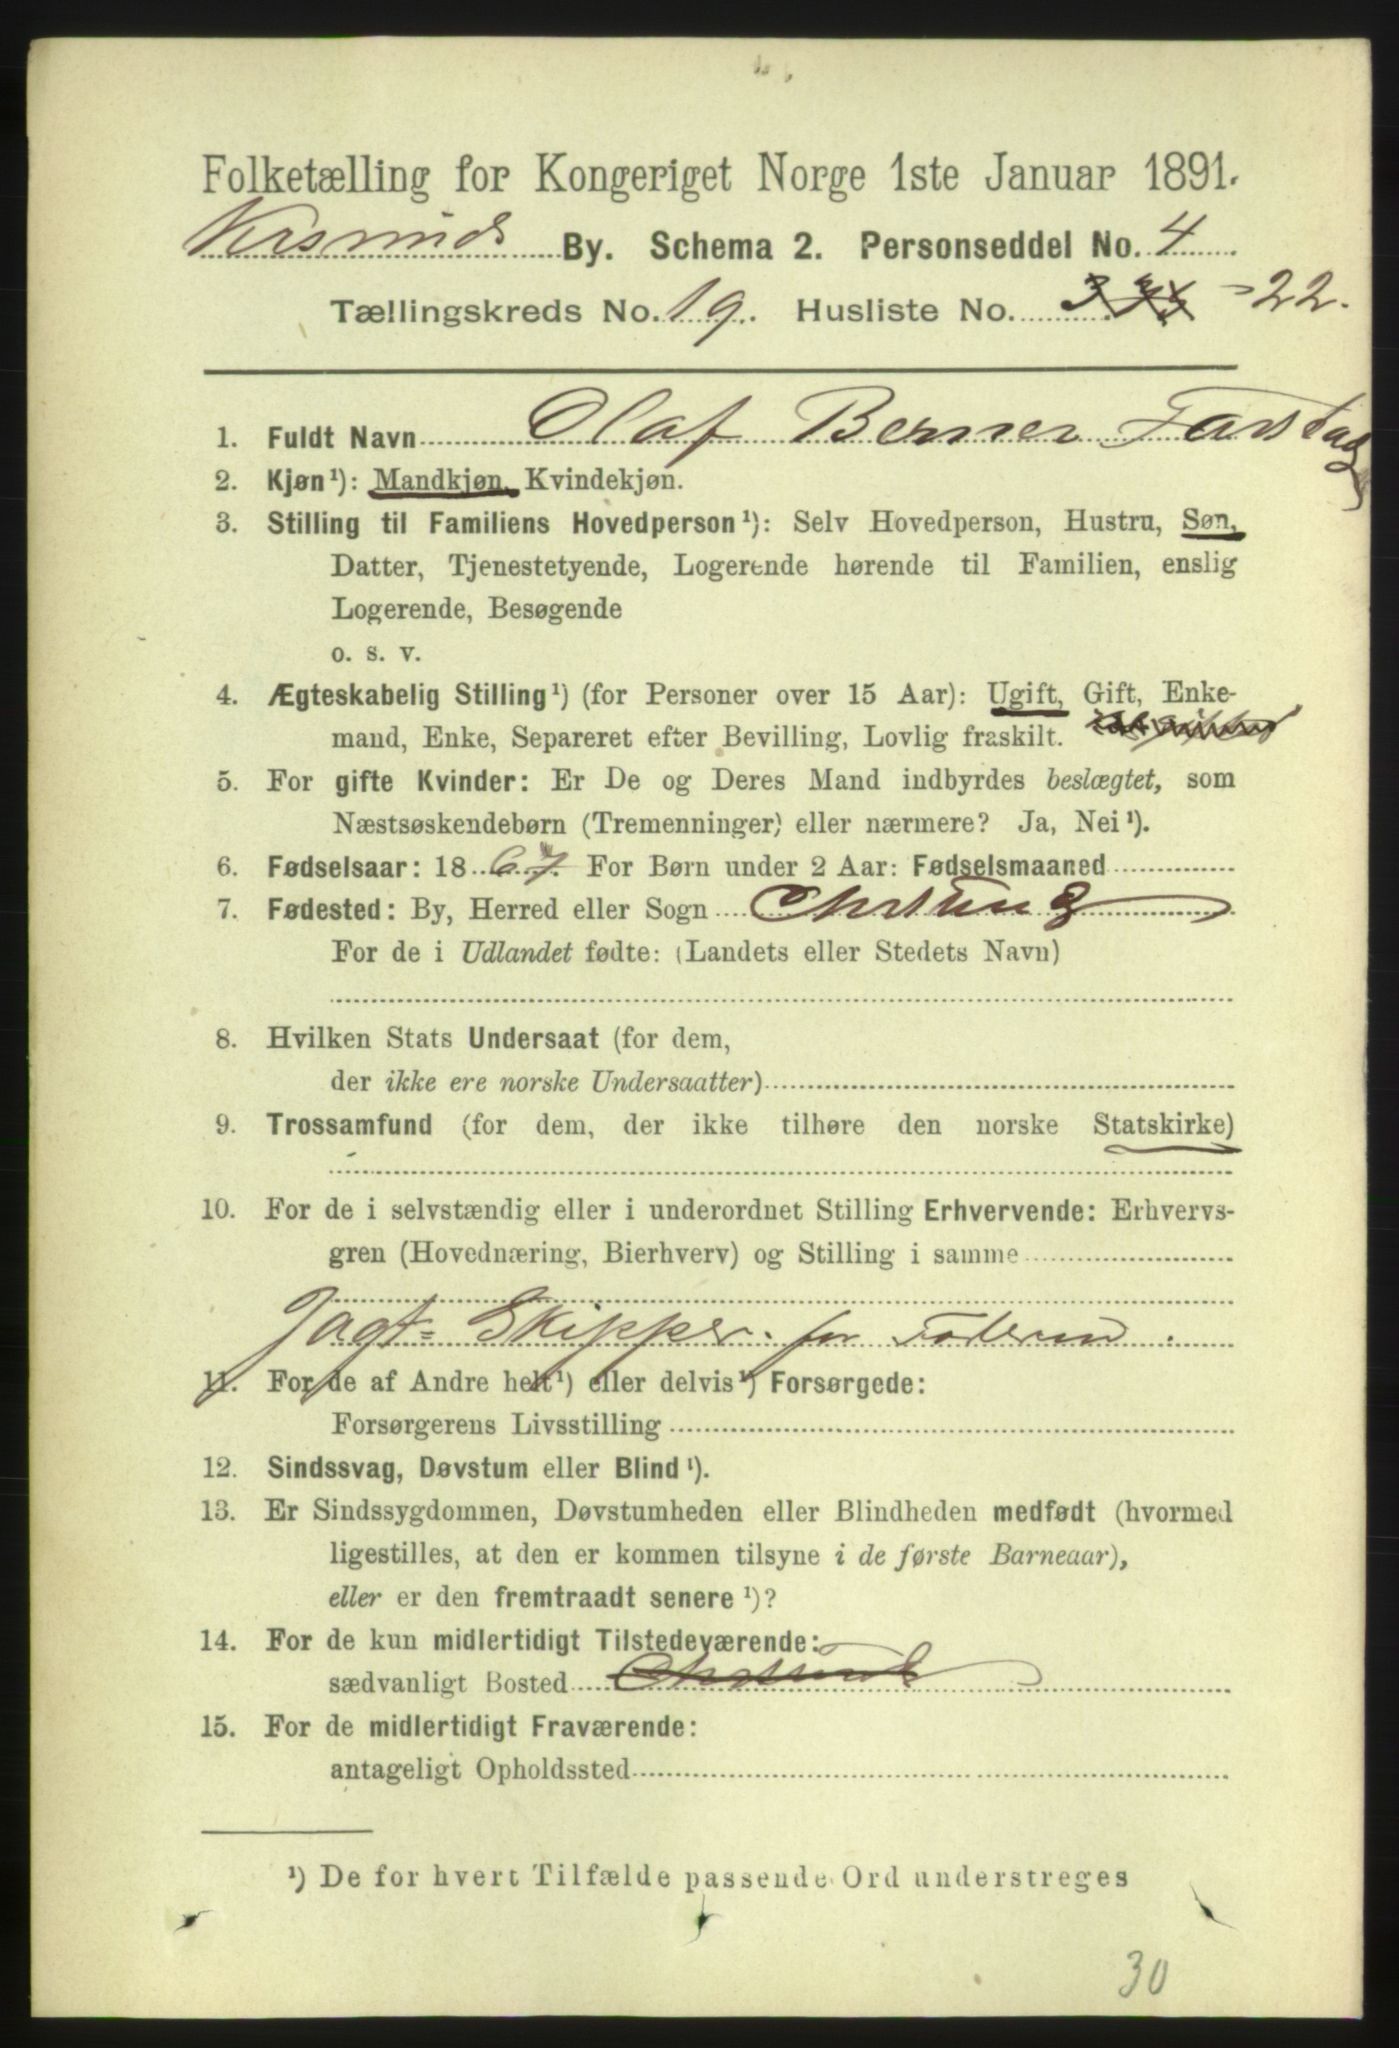 Folketælling for Kongeriget Norge 1ste Januar 1891.
Krsund By. Schema 2. Personseddel No. 4
Tællingskreds No. 19. Husliste No. 22.
1. Fuldt Navn Olaf Berner Farstag
2. Kjøn¹): Mandkjøn, Kvindekjøn.
3. Stilling til Familiens Hovedperson¹): Selv Hovedperson, Hustru, Søn,
Datter, Tjenestetyende, Logerende hørende til Familien, enslig
Logerende, Besøgende
o. s. v.
4. Ægteskabelig Stilling¹) (for Personer over 15 Aar): Ugift, Gift, Enke-
mand, Enke, Separeret efter Bevilling, Lovlig fraskilt.
5. For gifte Kvinder: Er De og Deres Mand indbyrdes beslægtet, som
Næstsøskendebørn (Tremenninger) eller nærmere? Ja, Nei¹).
6. Fødselsaar: 1867. For Børn under 2 Aar: Fødselsmaaned
7. Fødested: By, Herred eller Sogn Chrsund
For de i Udlandet fødte: (Landets eller Stedets Navn)
8. Hvilken Stats Undersaat (for dem,
der ikke ere norske Undersaatter)
9. Trossamfund (for dem, der ikke tilhøre den norske Statskirke)
10. For de i selvstændig eller i underordnet Stilling Erhvervende: Erhvervs-
gren (Hovednæring, Bierhverv) og Stilling i samme
Jagt-Skipper for Faderen.
11. For de af Andre helt¹) eller delvis¹) Forsørgede:
Forsørgerens Livsstilling
12. Sindssvag, Døvstum eller Blind¹).
13. Er Sindssygdommen, Døvstumheden eller Blindheden medfødt (hvormed
ligestilles, at den er kommen tilsyne i de første Barneaar),
eller er den fremtraadt senere¹)?
14. For de kun midlertidigt Tilstedeværende:
sædvanligt Bosted Chrsund
15. For de midlertidigt Fraværende:
antageligt Opholdssted
¹) De for hvert Tilfælde passende Ord understreges
30